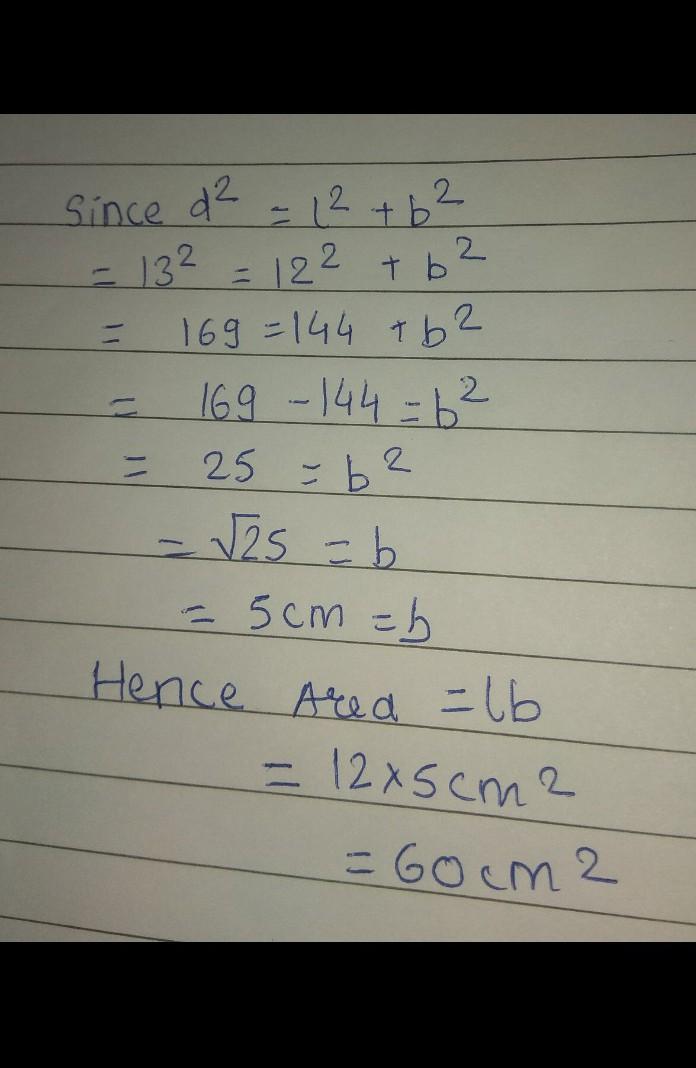 Since d² = l² + b²
= 13² = 12² + b²
= 169 = 144 + b²
= 169 - 144 = b²
= 25 = b²
= √25 = b
= 5cm = b
Hence Area = lb
= 12×5cm²
= 60cm²